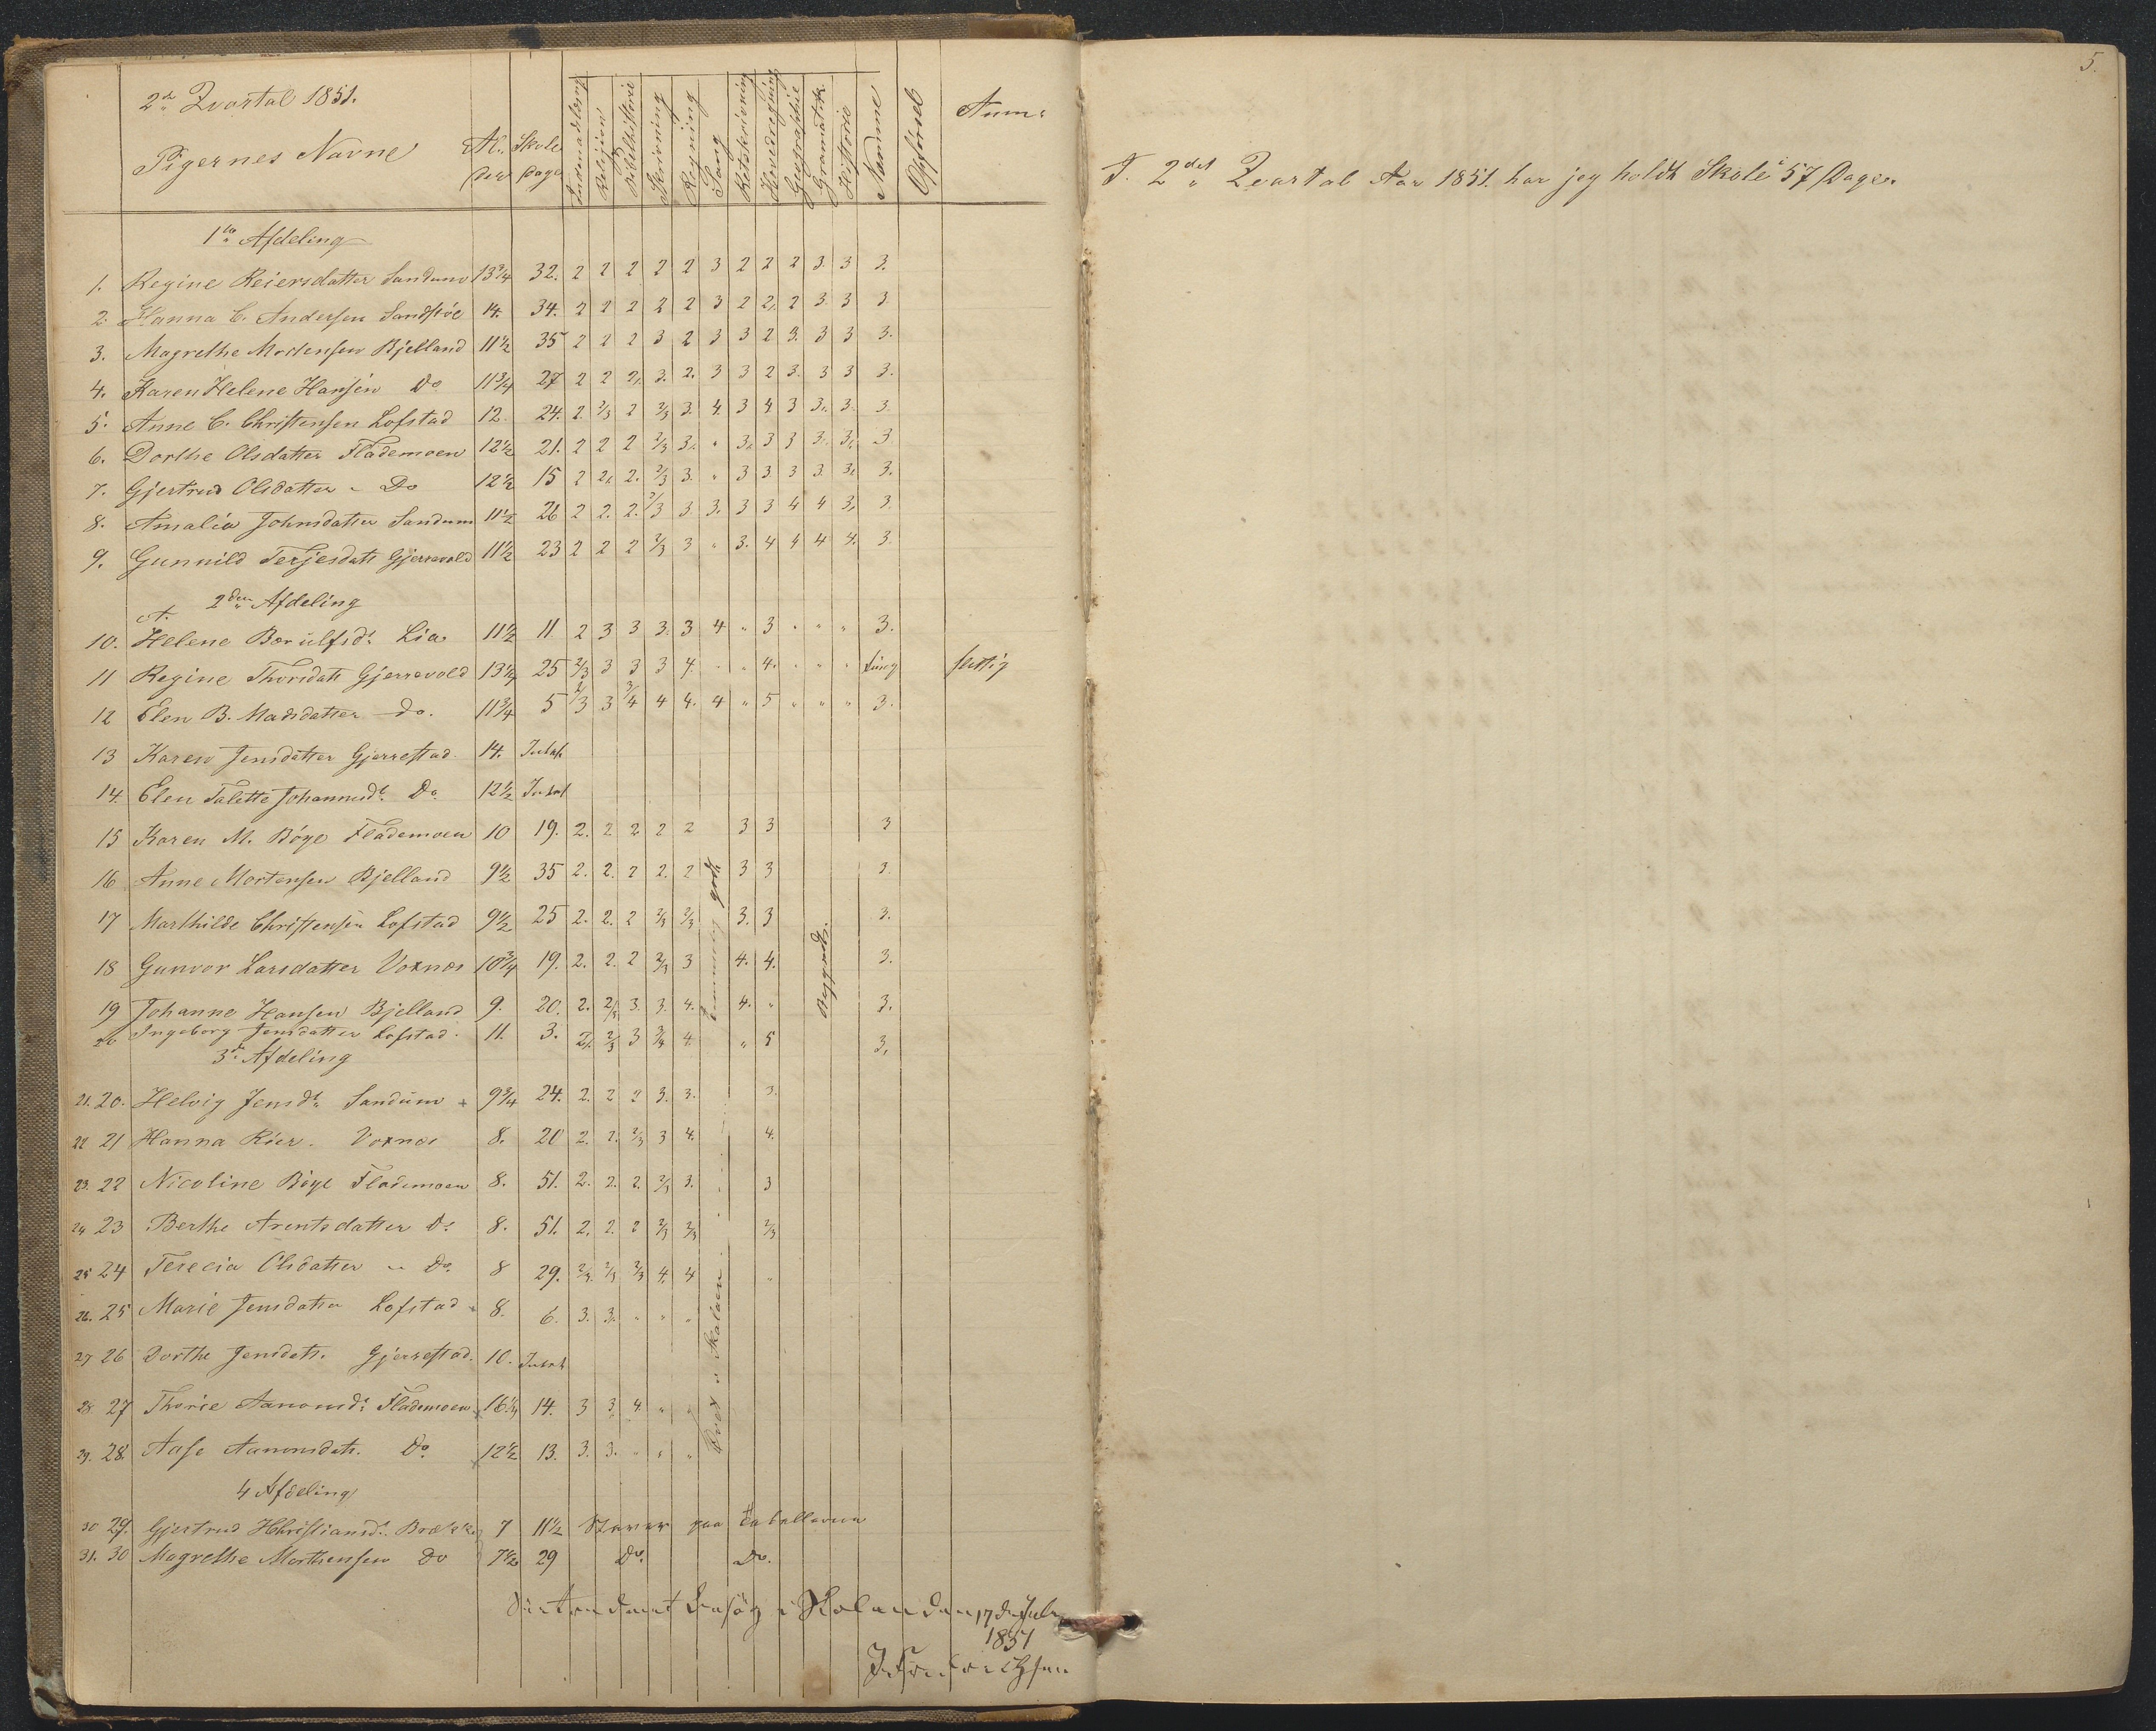 2d Qvartal 1851.
Pigernes Navne Al: der Skole Dage Indenadslæsng Religion Bibelhistorie Skrivning Regning Sang Retskrivning Hovedregning Geographie Gramatik. Historie Nemme Opførsel Anm:
1te Afdeling
1. Regine Reiersdatter Sandum 13 3/4 32. 2 2 2 2 2 3 2 2 2 3. 3 3.
2. Hanna C. Andersen Sandfløe 14. 34. 2 2 2 2 2 3 2 2. 2 3. 3 3
3. Magrethe Mortensen Bjelland 11 1/2 35 2 2 2 3 2 3 3 2 3. 3 3 3.
4. Karen Helene Hansen Do 11 3/4 27 2 2 2. 3. 2. 3 3 2 3. 3 3 3.
5. Anne C. Christensen Lofstad 12. 24. 2. 2/3 2 2/3 3. 4. 3 4 3 3. 3. 3.
6. Dorthe Olsdatter Flademoen 12 1/2 21. 2 2 2 2/3 3. " 3. 3 3 3. 3. 3
7. Gjertrud Olsdatter - Do 12 1/2 15 2 2. 2. 2/3 3. " 3 3. 3 3. 3. 3.
8. Amalia Johnsdatter Sandum 11 1/2 26 2 2. 2. 2/3 3 3. 3 3 4 4 3. 3.
9. Gunnild Terjesdatt Gjerrevold 11 1/2 23 2 2 2 2/3 3 " 3. 4 4 4 4. 3.
2den Afdeling
A.
10. Helene Borulfsdt Lia 11 1/2 11 2 3 3 3. 3 4 " 3 " " " 3.
11 Regine Thorsdatt Gjerrevold 13 1/4 25 2/3 3 3 3 4. " " 4. " " " tung flittig
12 Elen B. Madsdatter Do. 11 3/4 5 2/3 3 3/4 4 4. 4 " 5 " " " 3.
13 Karen Jensdatter Gjerrestad 14. Intet
14. Elen Talette Johannesdt Do 12 1/2 Intet
15 Karen M. Böye Flademoen 10 19. 2. 2 2 2 2 3 3 3
16 Anne Mortensen Bjelland 9 1/2 35 2. 2. 2 2. 2 3 3 3.
17 Marthilde Christensen Lofstad 9 1/2 25 2. 2. 2 2/3 2/3 3. 3 3.
18 Gunvor Larsdatter Voxnæs 10 3/4 19. 2. 2. 2 2/3 3 4. 4. 3.
19 Johanne Hansen Bjelland 9. 20. 2. 2/3 3. 3. 4. 4. " 3.
20 Ingeborg Jensdatter Lofstad. 11. 3. 2. 2/3 3 3/4 4 " 5 3.
temmelig godt
Begyndt.
3d Afdeling
21. 20. Helvig Jensdt Sandum 9 3/4 24. 2. 2 2 3. 3. 3.
22 21 Hanna Rier. Voxnæs 8. 20 2. 2. 2/3 3 4. 4.
23. 22 Nicoline Böye Flademoen 8. 51. 2. 2. 2. 2/3 3. 3
24 23 Berthe Arentsdatter Do 8. 51. 2. 2. 2 2/3 2/3 2/3
25 24 Terecia Olsdatter - Do. 8 29. 2/3. 2/3 2/3 4. 4 "
26. 25 Marie Jensdatter Lofstad 8. 6. 3. 3. " " "
27 26 Dorthe Jensdatt. Gjerrestad. 10. Intet
28. 27 Thorie Aanonsdt Flademoen 16 1/4 14. 3 3. 4. " "
29. 28. Aase Aanonsdatt. Do 12 1/2 13. 3. 3. " " "
i Skalaen
4 Afdeling
30 29. Gjertrud Christiansdt Brække 7 11 1/2 Staver paa tabellerne
31. 30 Magrethe Morthensen Do 7 1/2 29 Do. Do.
Besøg i Skolen den 17de July
1851
5.
I. 2det Qvartal Aar 1851. har jeg holdt Skole i 57 Dage.